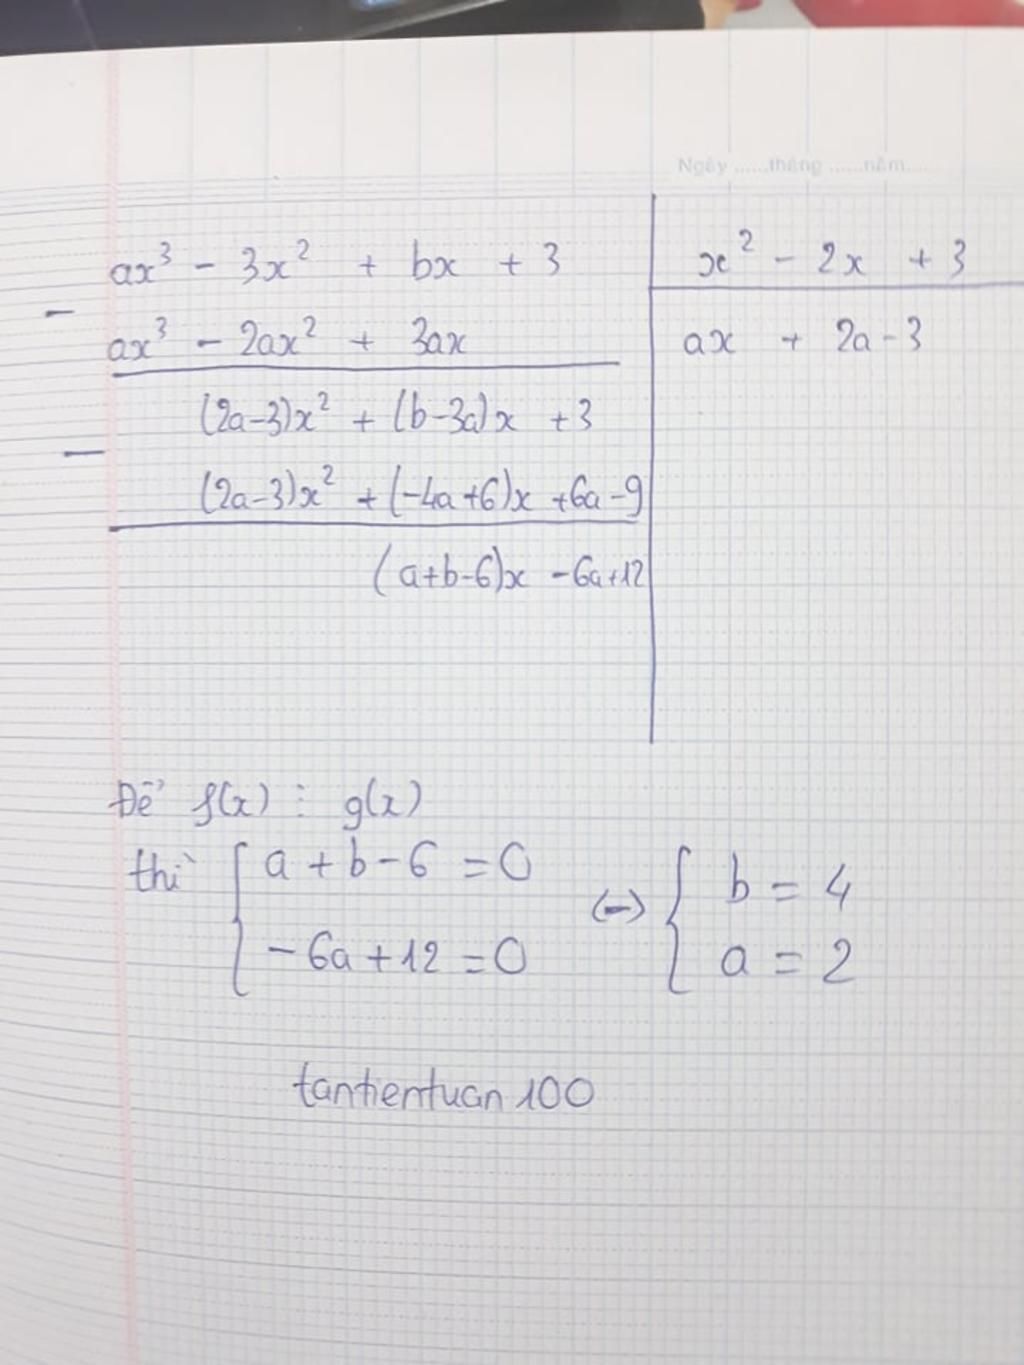 Ngày ......tháng ......năm......
ax³ - 3x² + bx + 3 | x² - 2x + 3
- ax³ - 2ax² + 3ax | ax + 2a - 3
(2a-3)x² + (b-3a)x + 3
- (2a-3)x² + (-4a+6)x + 6a - 9
(a+b-6)x - 6a + 12
Để f(x) ⋮ g(x)
thì { a + b - 6 = 0 (-) { b = 4
- 6a + 12 = 0 a = 2
tantientuan 100